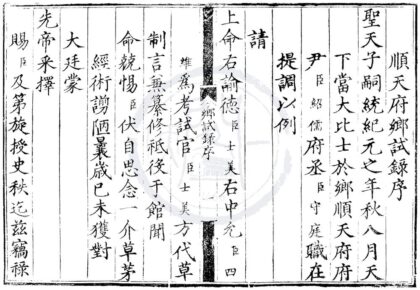 順天府鄉試錄序
聖天子嗣統紀元之年秋八月天
下當大比士於鄉順天府府
尹臣紹儒府丞臣守庭職在
提調以例
請
上命右諭德臣士美右中允臣四
鄉試錄序
維爲考試官臣士美方代草
制言兼纂修祗役于館聞
命兢惕臣伏自思念一介草茅
經術謭陋曩歲己未獲對
大廷蒙
先帝采擇
賜臣及第旋授史秩迄兹竊祿